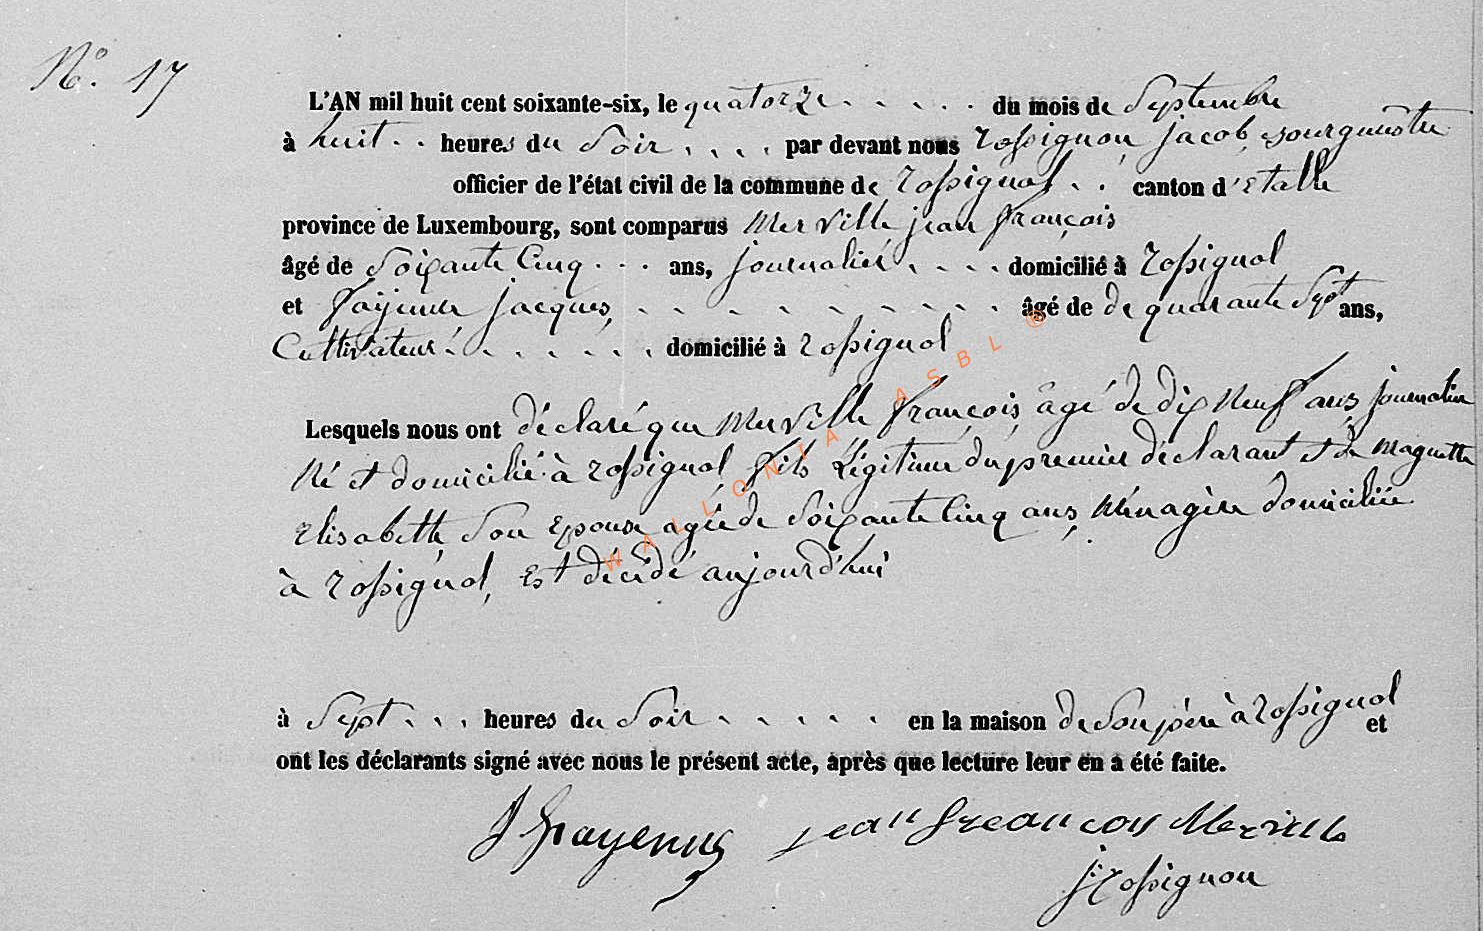 N° 17
L'AN mil huit cent soixante-six, le quatorze du mois de Septembre
à huit heures du Soir par devant nous Rossignon jacob, bourgmestre
officier de l'état civil de la commune de Rossignol canton d'Etalle
province de Luxembourg, sont comparus Merville jean françois
âgé de Soixante Cinq ans, journalier domicilié à Rossignol
et jacques, âgé de de quarante Sept ans,
Cultivateur domicilié à rossignol
Lesquels nous ont déclaré que Merville françois, âgé de dix Neuf ans, journalier
Né et domicilié à rossignol, fils Légitime du premier déclarant et de Maguette
Elisabeth, Son Epouse agée de Soixante Cinq ans, Ménagère domiciliée
à rossignol, Est décédé aujourd'hui
à Sept heures du Soir en la maison de Son père à rossignol et
ont les déclarants signé avec nous le présent acte, après que lecture leur en a été faite.
jean Francois Merville
j. rossignon
WALLONIA ASBL ®